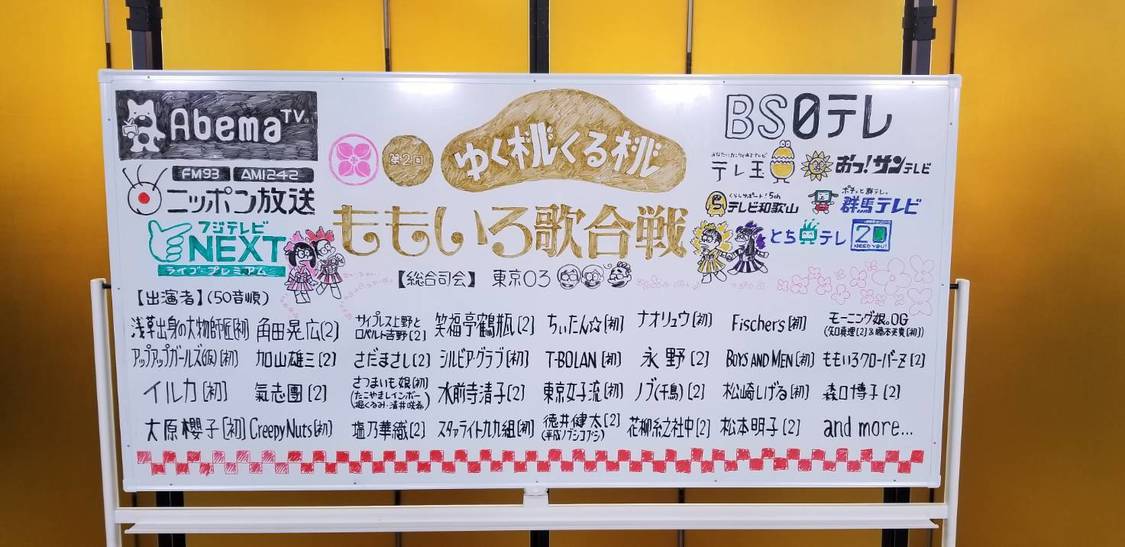 AbemaTV
FM93 AM1242
ニッポン放送
フジテレビ
NEXT
ライブ・プレミアム
第2回
ゆく桃くる桃
ももいろ歌合戦
【総合司会】 東京03
BS日テレ
テレ玉
おっ!サンテレビ
テレビ和歌山
ポチッと群テレ。
群馬テレビ
とちテレ
【出演者】(50音順)
浅草出身の大物師匠[初] 角田晃広[2] サイプレス上野とロベルト吉野[2] 笑福亭鶴瓶[2] ちぃたん☆[初] ナオリュウ[初] Fischer's[初] モーニング娘。OG(矢口真理[2]&橋本天貴[初])
アップアップガールズ(仮)[初] 加山雄三[2] さだまさし[2] シルビア・グラブ[初] T-BOLAN[初] 永野[2] BOYS AND MEN[初] ももいろクローバーZ[2]
イルカ[初] 氣志團[2] さつまいも娘[初](たこやきレインボー・堀くるみ・清井咲希) 水前寺清子[2] 東京女子流[初] ノブ(千鳥)[2] 松崎しげる[初] 森口博子[2]
大原櫻子[初] Creepy Nuts[初] 塩乃華織[2] スタァライト九九組[初] 徳井健太[2](平成ノブシコブシ) 花柳糸之社中[2] 松本明子[2] and more...